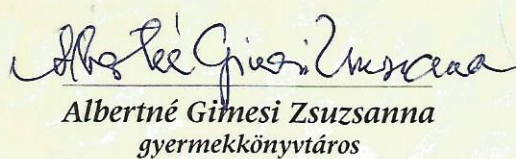 Albertné Gimesi Zsuzsanna
Albertné Gimesi Zsuzsanna
gyermekkönyvtáros